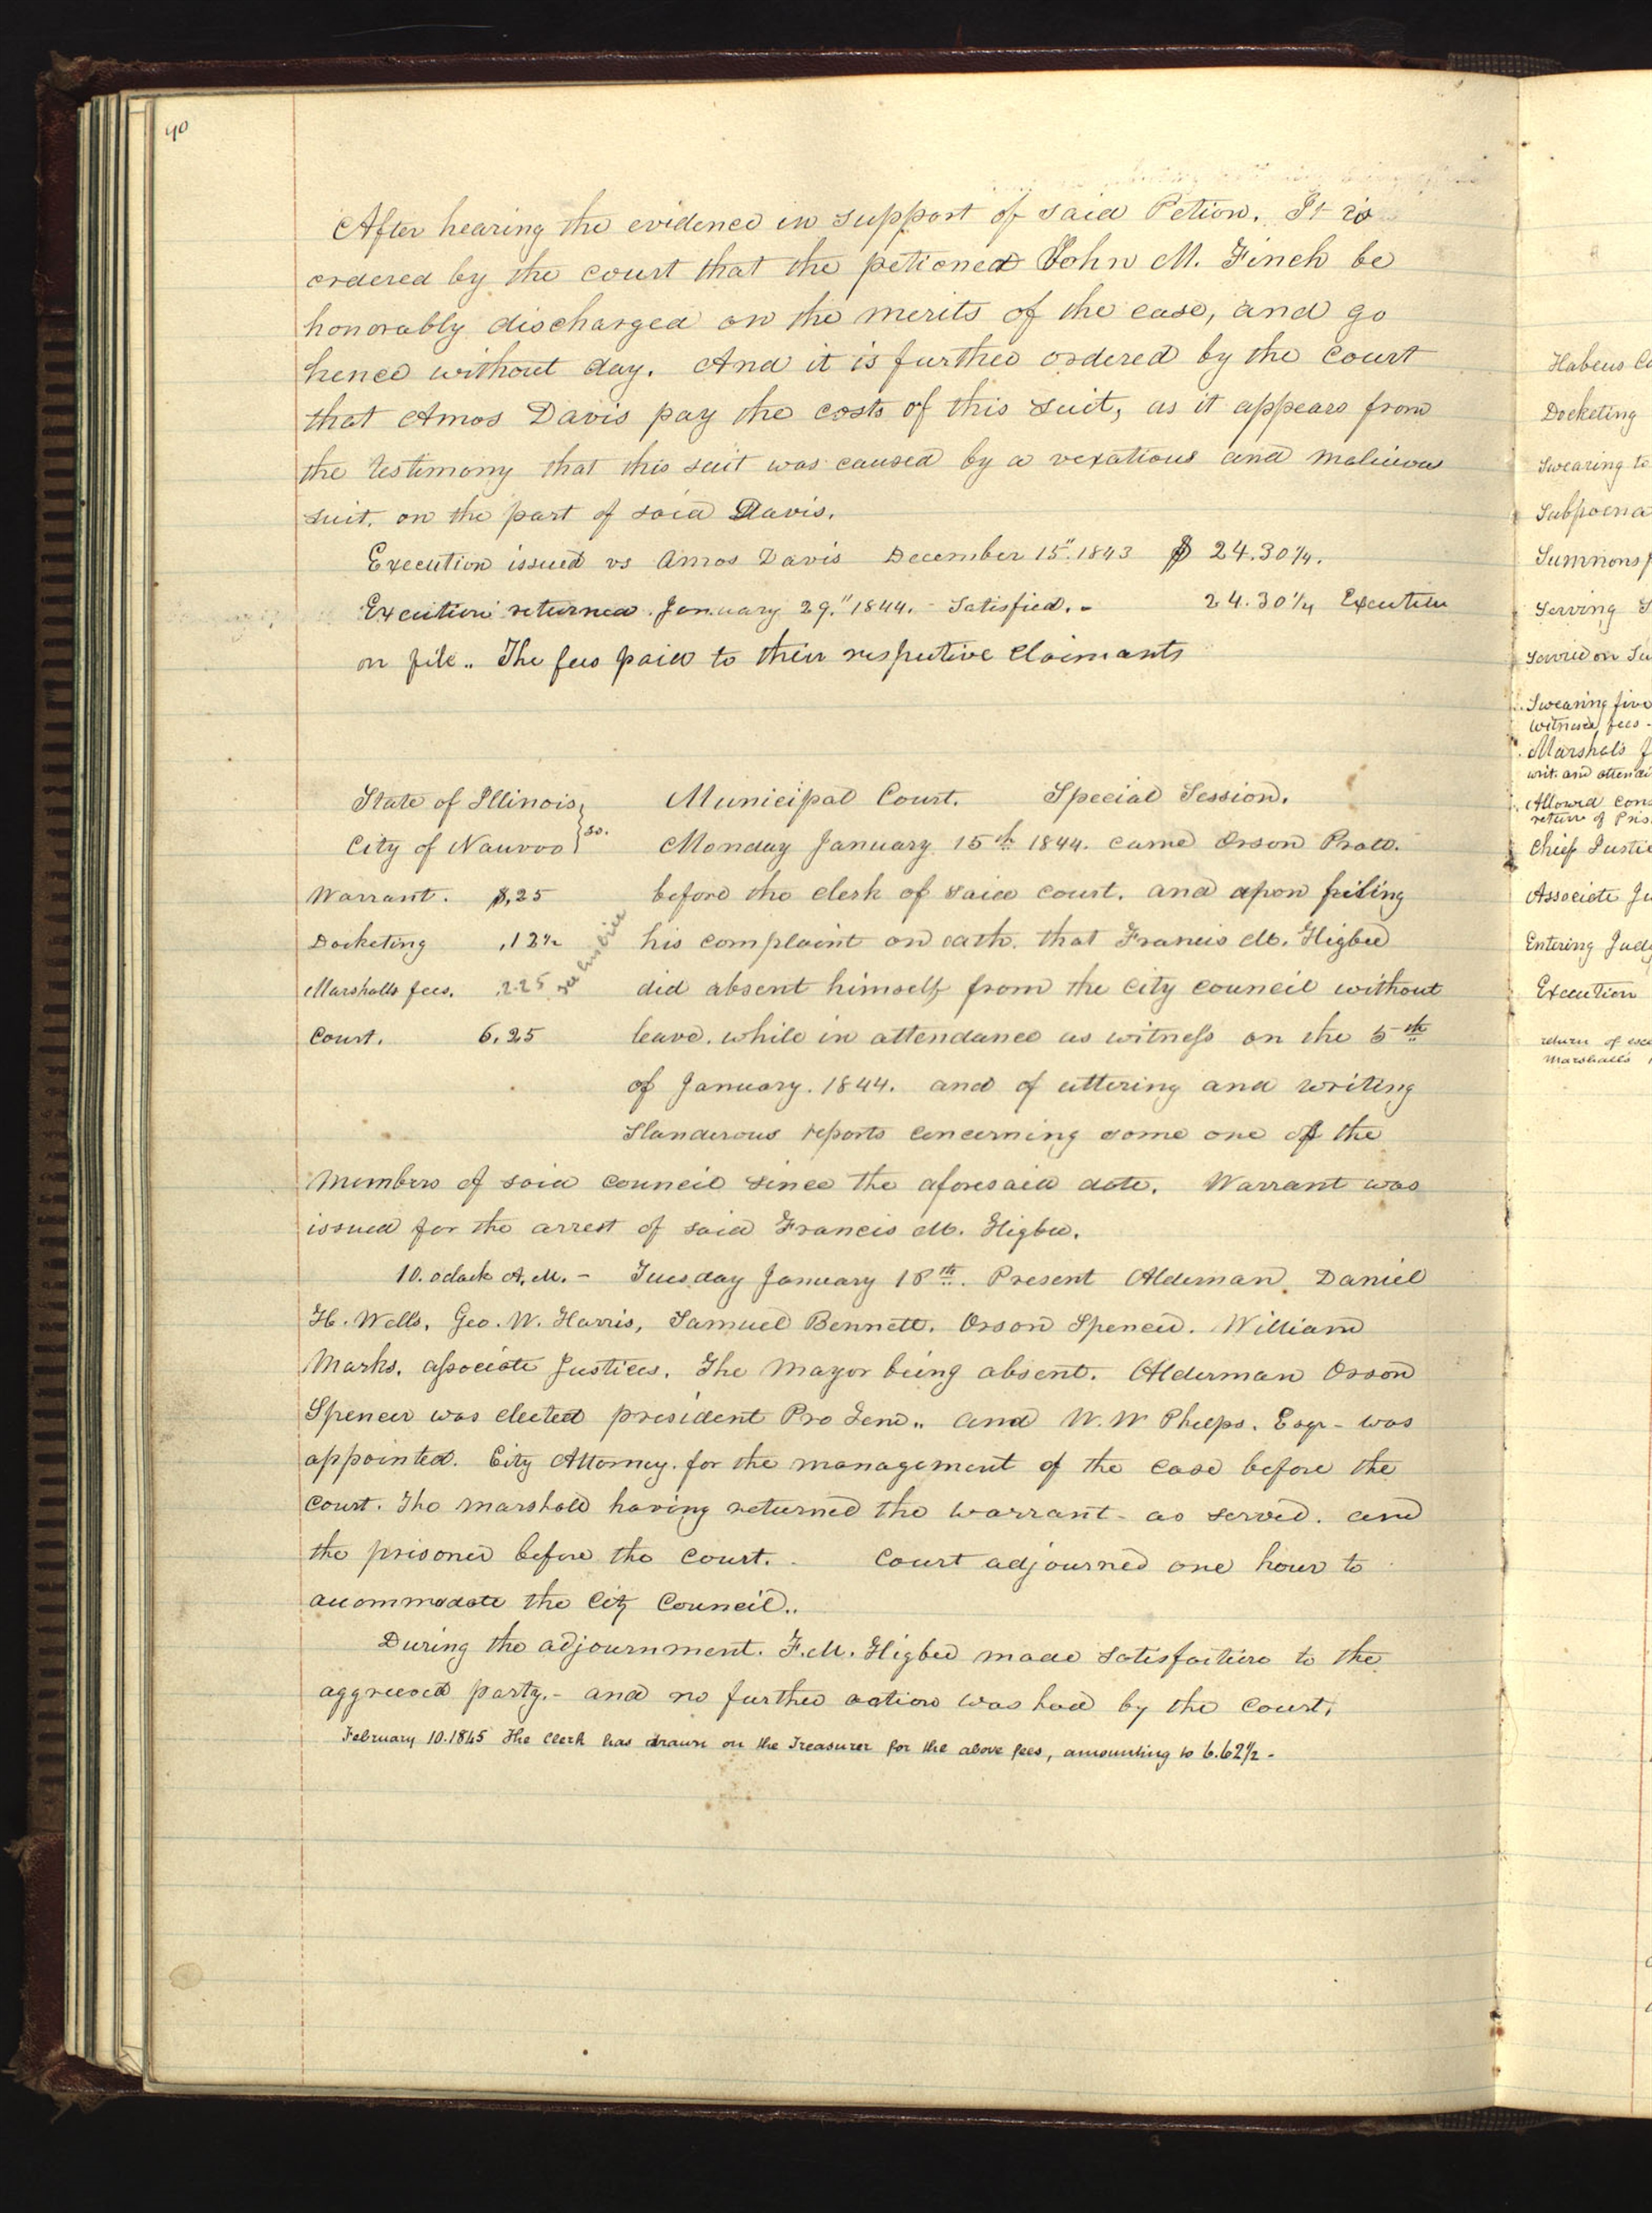 40
After hearing the evidence in support of said Petion. It is
ordered by the court that the petioned John M. Finch be
honorably discharged on the merits of the case, and go
hence without day. And it is further ordered by the court
that Amos Davis pay the costs of this suit, as it appears from
the testimony that this suit was caused by a vexatious and malicious
suit, on the part of said Davis.
Execution issued vs Amos Davis December 15." 1843 $ 24.30¼.
Execution returned January 29." 1844. - Satisfied. - 24.30¼ Execution
on file.. The fees paid to their respective claimants
State of Illinois, } ss. Municipal Court. Special Session.
City of Nauvoo Monday January 15th 1844. came Orson Pratt.
Warrant. $,25 before the clerk of said court. and upon filing
Docketing ,12½ his complaint on oath. that Francis M. Higbee
Marshalls fees. .225 did absent himself from the city council without
Court. 6,25 leave. while in attendance as witness on the 5th
of January. 1844. and of uttering and writing
slanderous reports concerning some one of the
members of said council since the aforesaid date. Warrant was
issued for the arrest of said Francis M. Higbee.
10. oclock A.M. - Tuesday January 16th. Present Alderman Daniel
H. Wells, Geo. W. Harris, Samuel Bennett. Orson Spencer. William
Marks. associate Justices. The Mayor being absent. Alderman Orson
Spencer was elected president Pro Tem.. and W. W Phelps. Esqr - was
appointed. City Attorney. for the management of the case before the
court. The marshall having returned the warrant - as served. and
the prisoner before the court. - Court adjourned one hour to
accommodate the City Council..
During the adjournment. F. M. Higbee made satisfaction to the
aggrieved party. - and no further action was had by the court.
February 10. 1845 The Clerk has drawn on the Treasurer for the above fees, amounting to 6.62½ -
Habeus
Docketing
Swearing to
Subpoena
Summons
Serving
Swearing five
witness fees -
Marshals
writ. and
Allowed
return of
Chief
Associate
Entering
Execution
return of
Marshalls